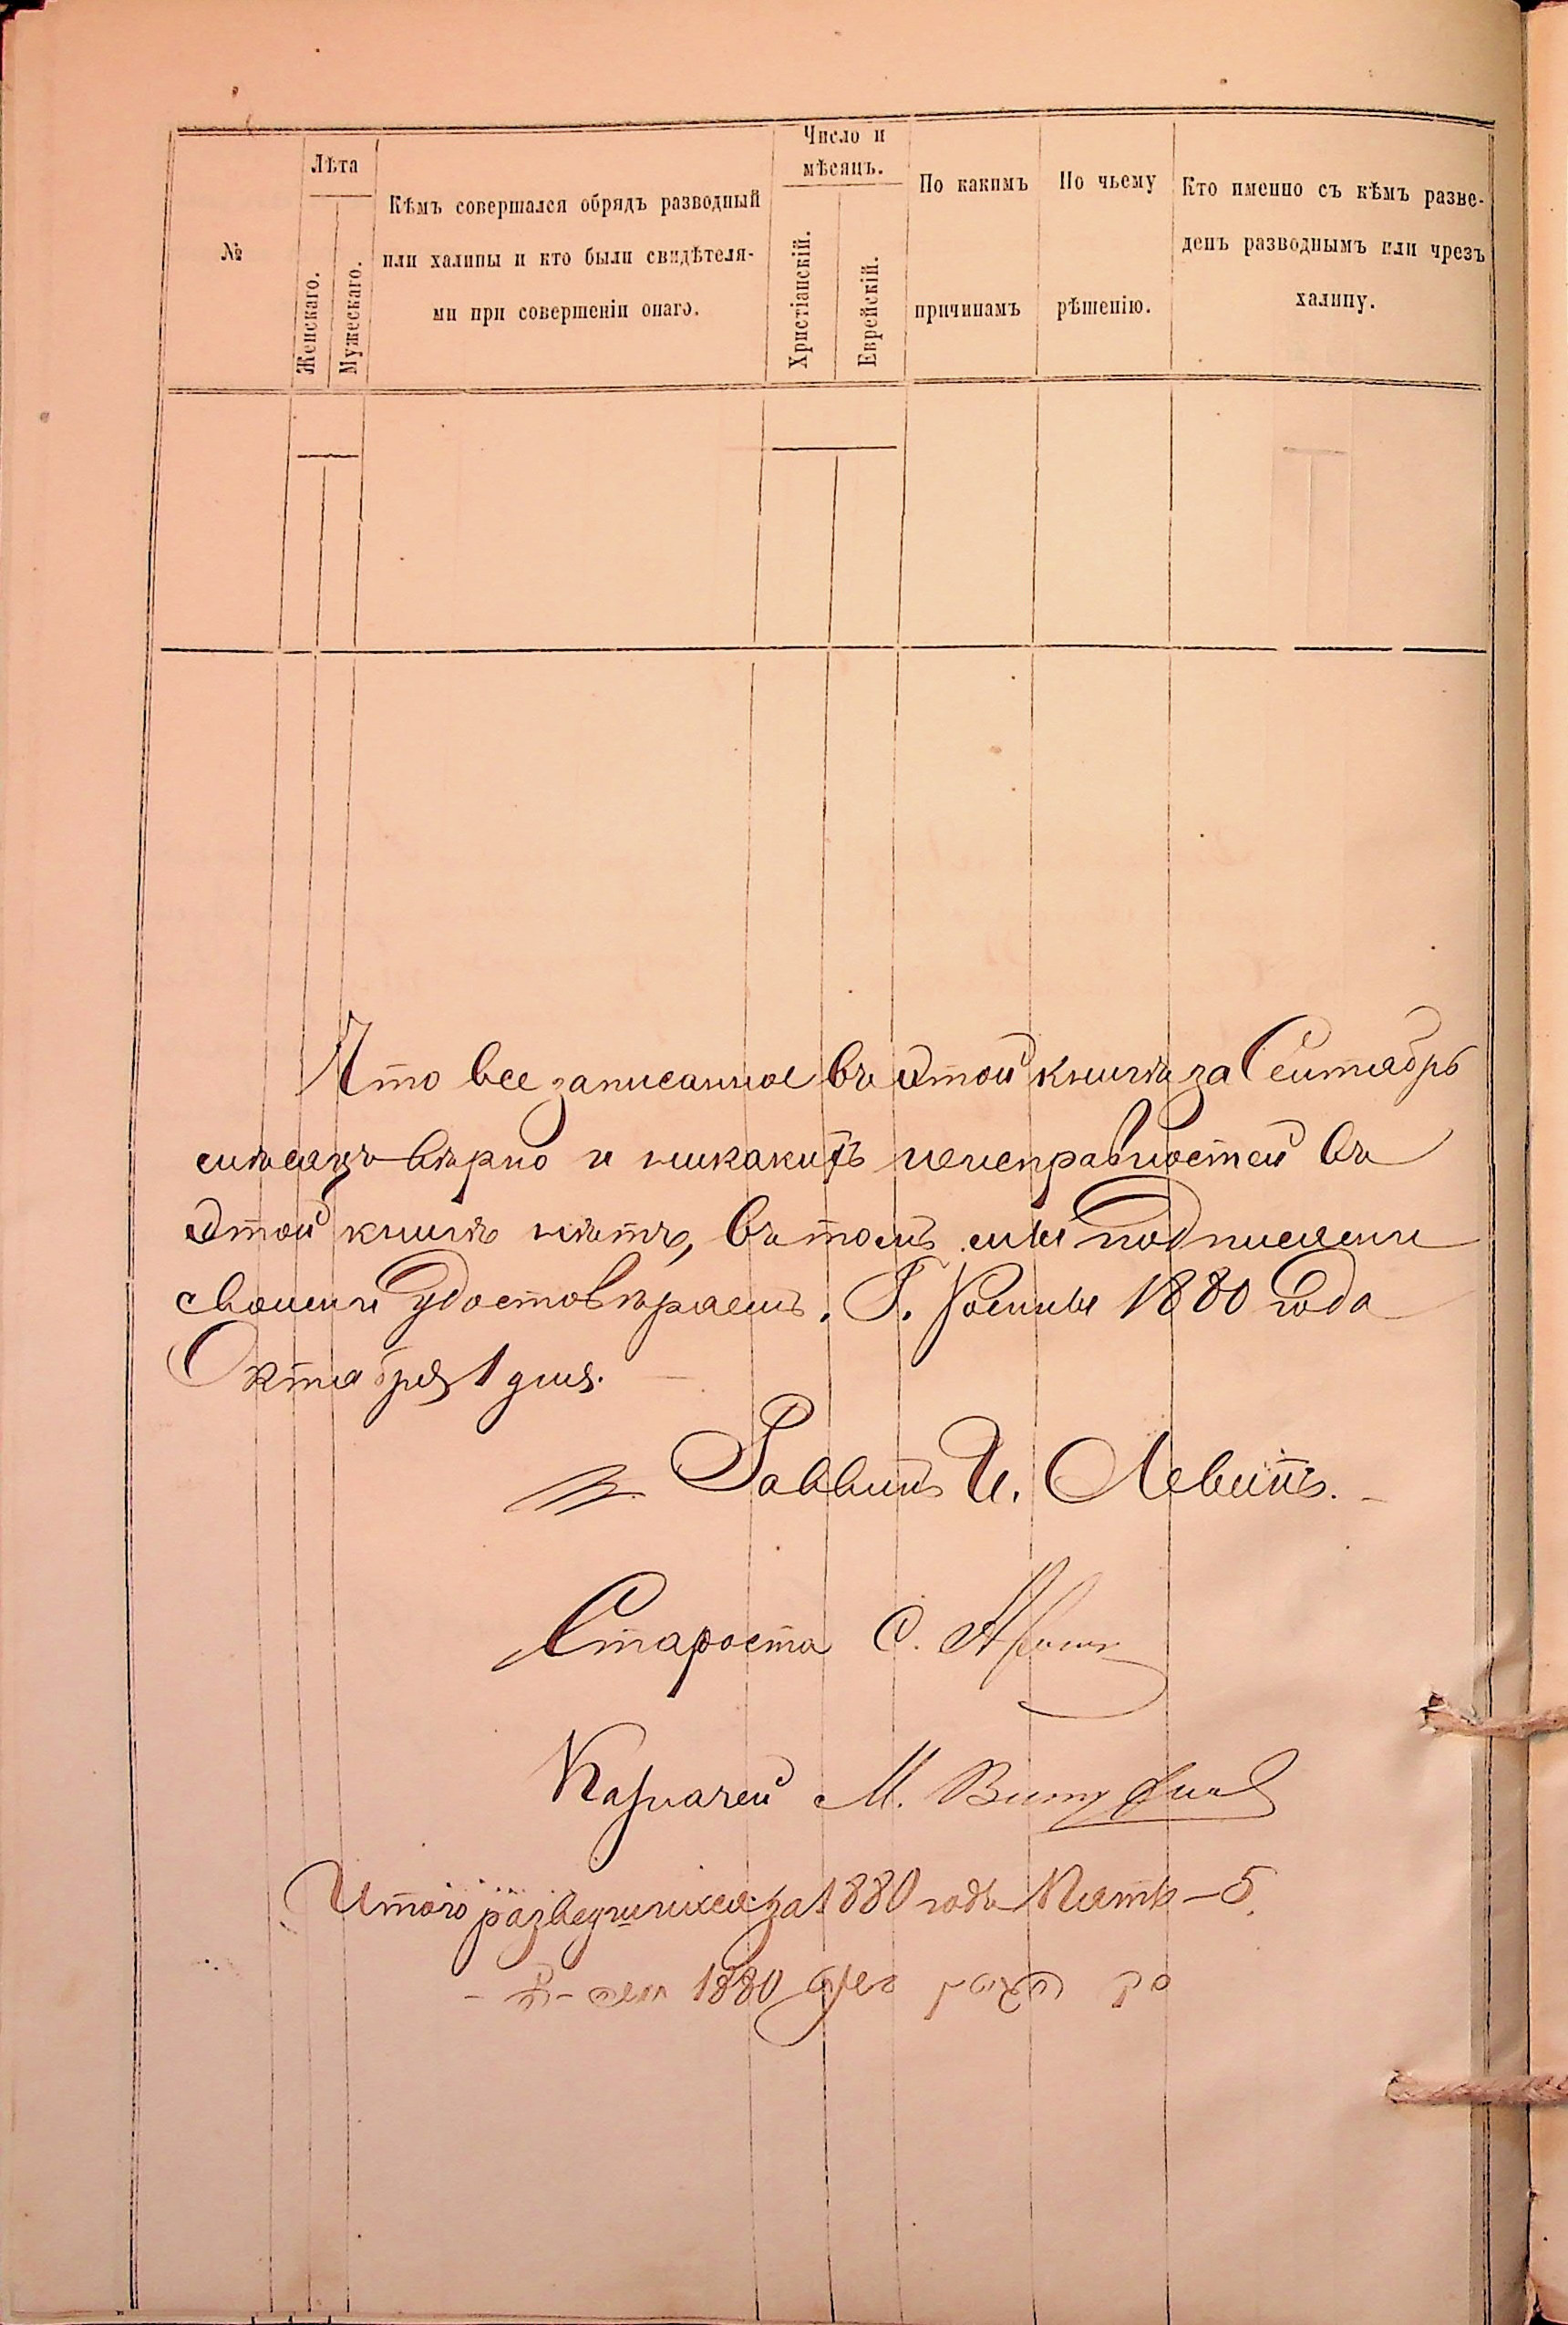 №
Лѣта
Женскаго.
Мужескаго.
Кѣмъ совершался обрядъ разводный
или халицы и кто были свидѣтеля-
ми при совершеніи онаго.
Число и
мѣсяцъ.
Христіанскій.
Еврейскій.
По какимъ
причинамъ
По чьему
рѣшенію.
Кто именно съ кѣмъ разве-
денъ разводнымъ или чрезъ
халицу.
Что все записанное въ этой книгѣ за Сентябрь
мѣсяцъ вѣрно и никакихъ неисправностей въ
этой книгѣ нѣтъ, въ томъ мы подписями
своими удостовѣряемъ. Г. Ромны 1880 года
Октября 1 дня.
Раввинъ И. Левинъ.
Староста С.
Казначей М.
Итого разведшихся за 1880 годъ Пять – 5.
1880